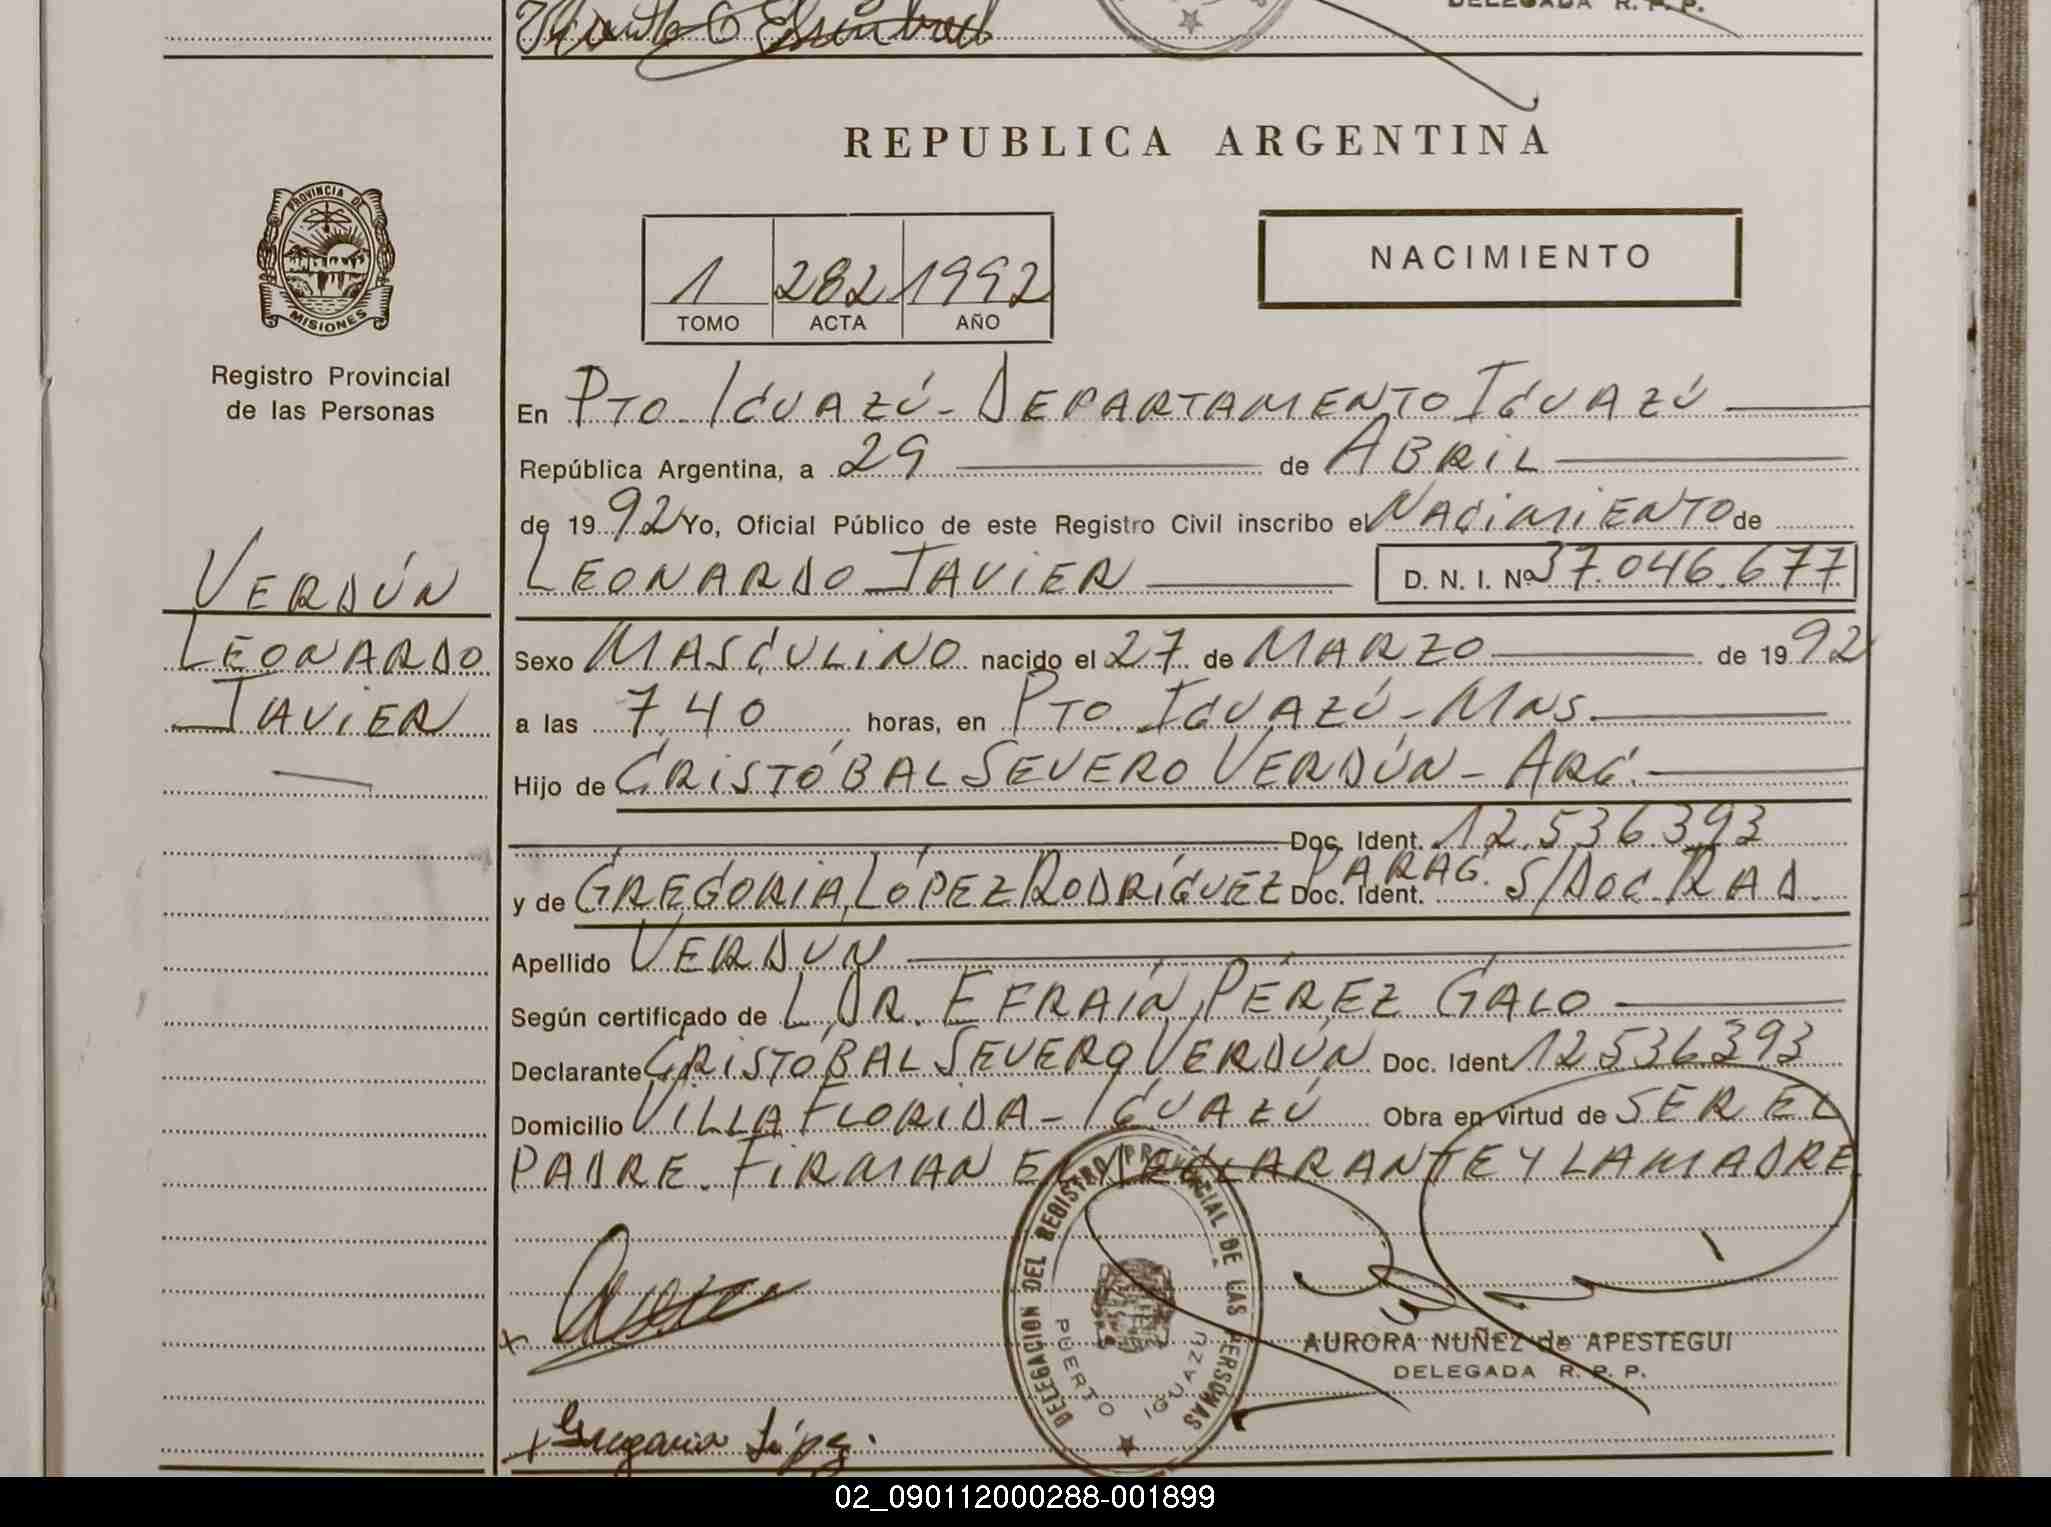 DELEGADA R. P. P.
REPUBLICA ARGENTINA
PROVINCIA DE
MISIONES
1 282 1992
TOMO ACTA AÑO
NACIMIENTO
Registro Provincial
de las Personas
En PTO. IGUAZÚ - DEPARTAMENTO IGUAZÚ
República Argentina, a 29 de ABRIL
de 1992 Yo, Oficial Público de este Registro Civil inscribo el NACIMIENTO de
LEONARDO JAVIER D. N. I. Nº 37.046.677
VERDÚN
LEONARDO
JAVIER
Sexo MASCULINO nacido el 27 de MARZO de 1992
a las 7,40 horas, en PTO IGUAZÚ - MNS
Hijo de CRISTÓBAL SEVERO VERDÚN - ARG.
Doc. Ident. 12.536.393
y de GREGORIA LÓPEZ RODRÍGUEZ PARAG. Doc. Ident. S/DOC. RAD.
Apellido VERDUN
Según certificado de L DR. EFRAÍN PÉREZ GALO
Declarante CRISTÓBAL SEVERO VERDÚN Doc. Ident. 12536393
Domicilio VILLA FLORIDA - IGUAZÚ Obra en virtud de SER EL
PADRE. FIRMAN EL DECLARANTE Y LA MADRE
DELEGACION DEL REGISTRO PROVINCIAL DE LAS PERSONAS
PUERTO IGUAZÚ
AURORA NUÑEZ de APESTEGUI
DELEGADA R. P. P.
Gregoria López.
02_090112000288-001899